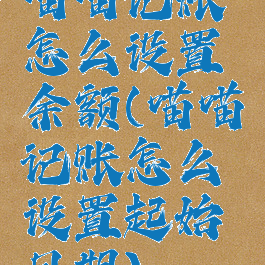 喵喵记账
怎么设置
余额(喵喵
记账怎么
设置起始
日期)